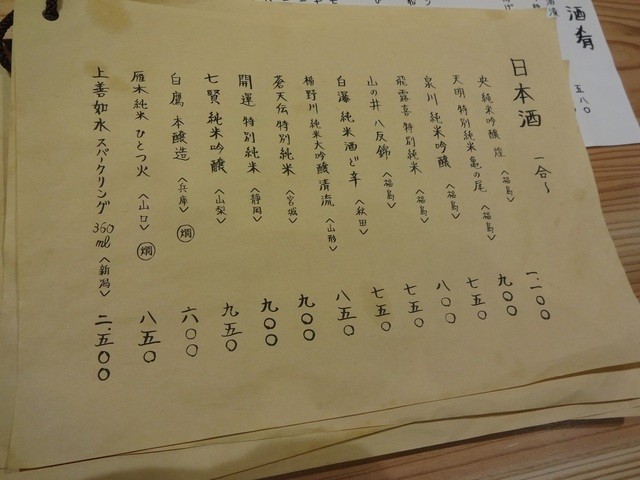 酒肴
五八〇
日本酒 一合〜
央 純米吟醸 煌 〈福島〉 一.一〇〇
天明 特別純米 亀の尾 〈福島〉 九〇〇
泉川 純米吟醸 〈福島〉 七五〇
飛露喜 特別純米 〈福島〉 八〇〇
山の井 八反錦 〈福島〉 七五〇
白瀑 純米酒ど辛 〈秋田〉 七五〇
楯野川 純米大吟醸 清流 〈山形〉 八五〇
蒼天伝 特別純米 〈宮城〉 九〇〇
開運 特別純米 〈静岡〉 九〇〇
七賢 純米吟醸 〈山梨〉 九五〇
白鷹 本醸造 〈兵庫〉 燗 六〇〇
雁木 純米 ひとつ火 〈山口〉 燗 八五〇
上善如水 スパークリング 360ml 〈新潟〉 二.五〇〇